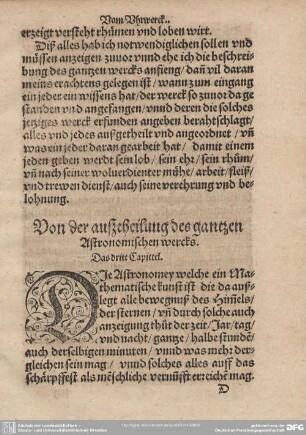 Vom Vhrwerck.
erzeigt versteht rhůmen vnd loben wirt.
Diß alles hab ich notwendiglichen sollen vnd
müssen anzeigen zuuor vnnd ehe ich die beschrei-
bung des gantzen wercks anfieng/ dañ vil daran
meins erachtens gelegen ist/ wann zum eingang
ein jeder ein wissens hat/ der werck so zuuor da ge
standen vnd angefangen/ vnnd deren die solches
jetziges werck erfunden angeben berahtschlagt/
alles vnd jedes außgetheilt vnd angeordnet/ vñ
was ein jeder daran gearbeit hat/ damit einem
jeden geben werdt sein lob/ sein ehr/ sein rhům/
vñ nach seiner woluerdienter můhe/ arbeit/ fleiß/
vnd trewen dienst/ auch seine verehrung vnd be-
lohnung.
Von der außtheilung des gantzen
Astronomischen wercks.
Das dritt Capittel.
DIe Astronomey welche ein Ma-
thematische kunst ist die da auß-
legt alle bewegnuß des Him̃els/
der sternen/ vñ durch solche auch
anzeigung thůt der zeit/ Jar/ tag/
vnd nacht/ gantze/ halbe stunde/
auch derselbigen minuten/ vnnd was mehr der-
gleichen sein mag/ vnnd solches alles auff das
schärpffest als mẽschliche vernũfft erreichẽ mag.
D